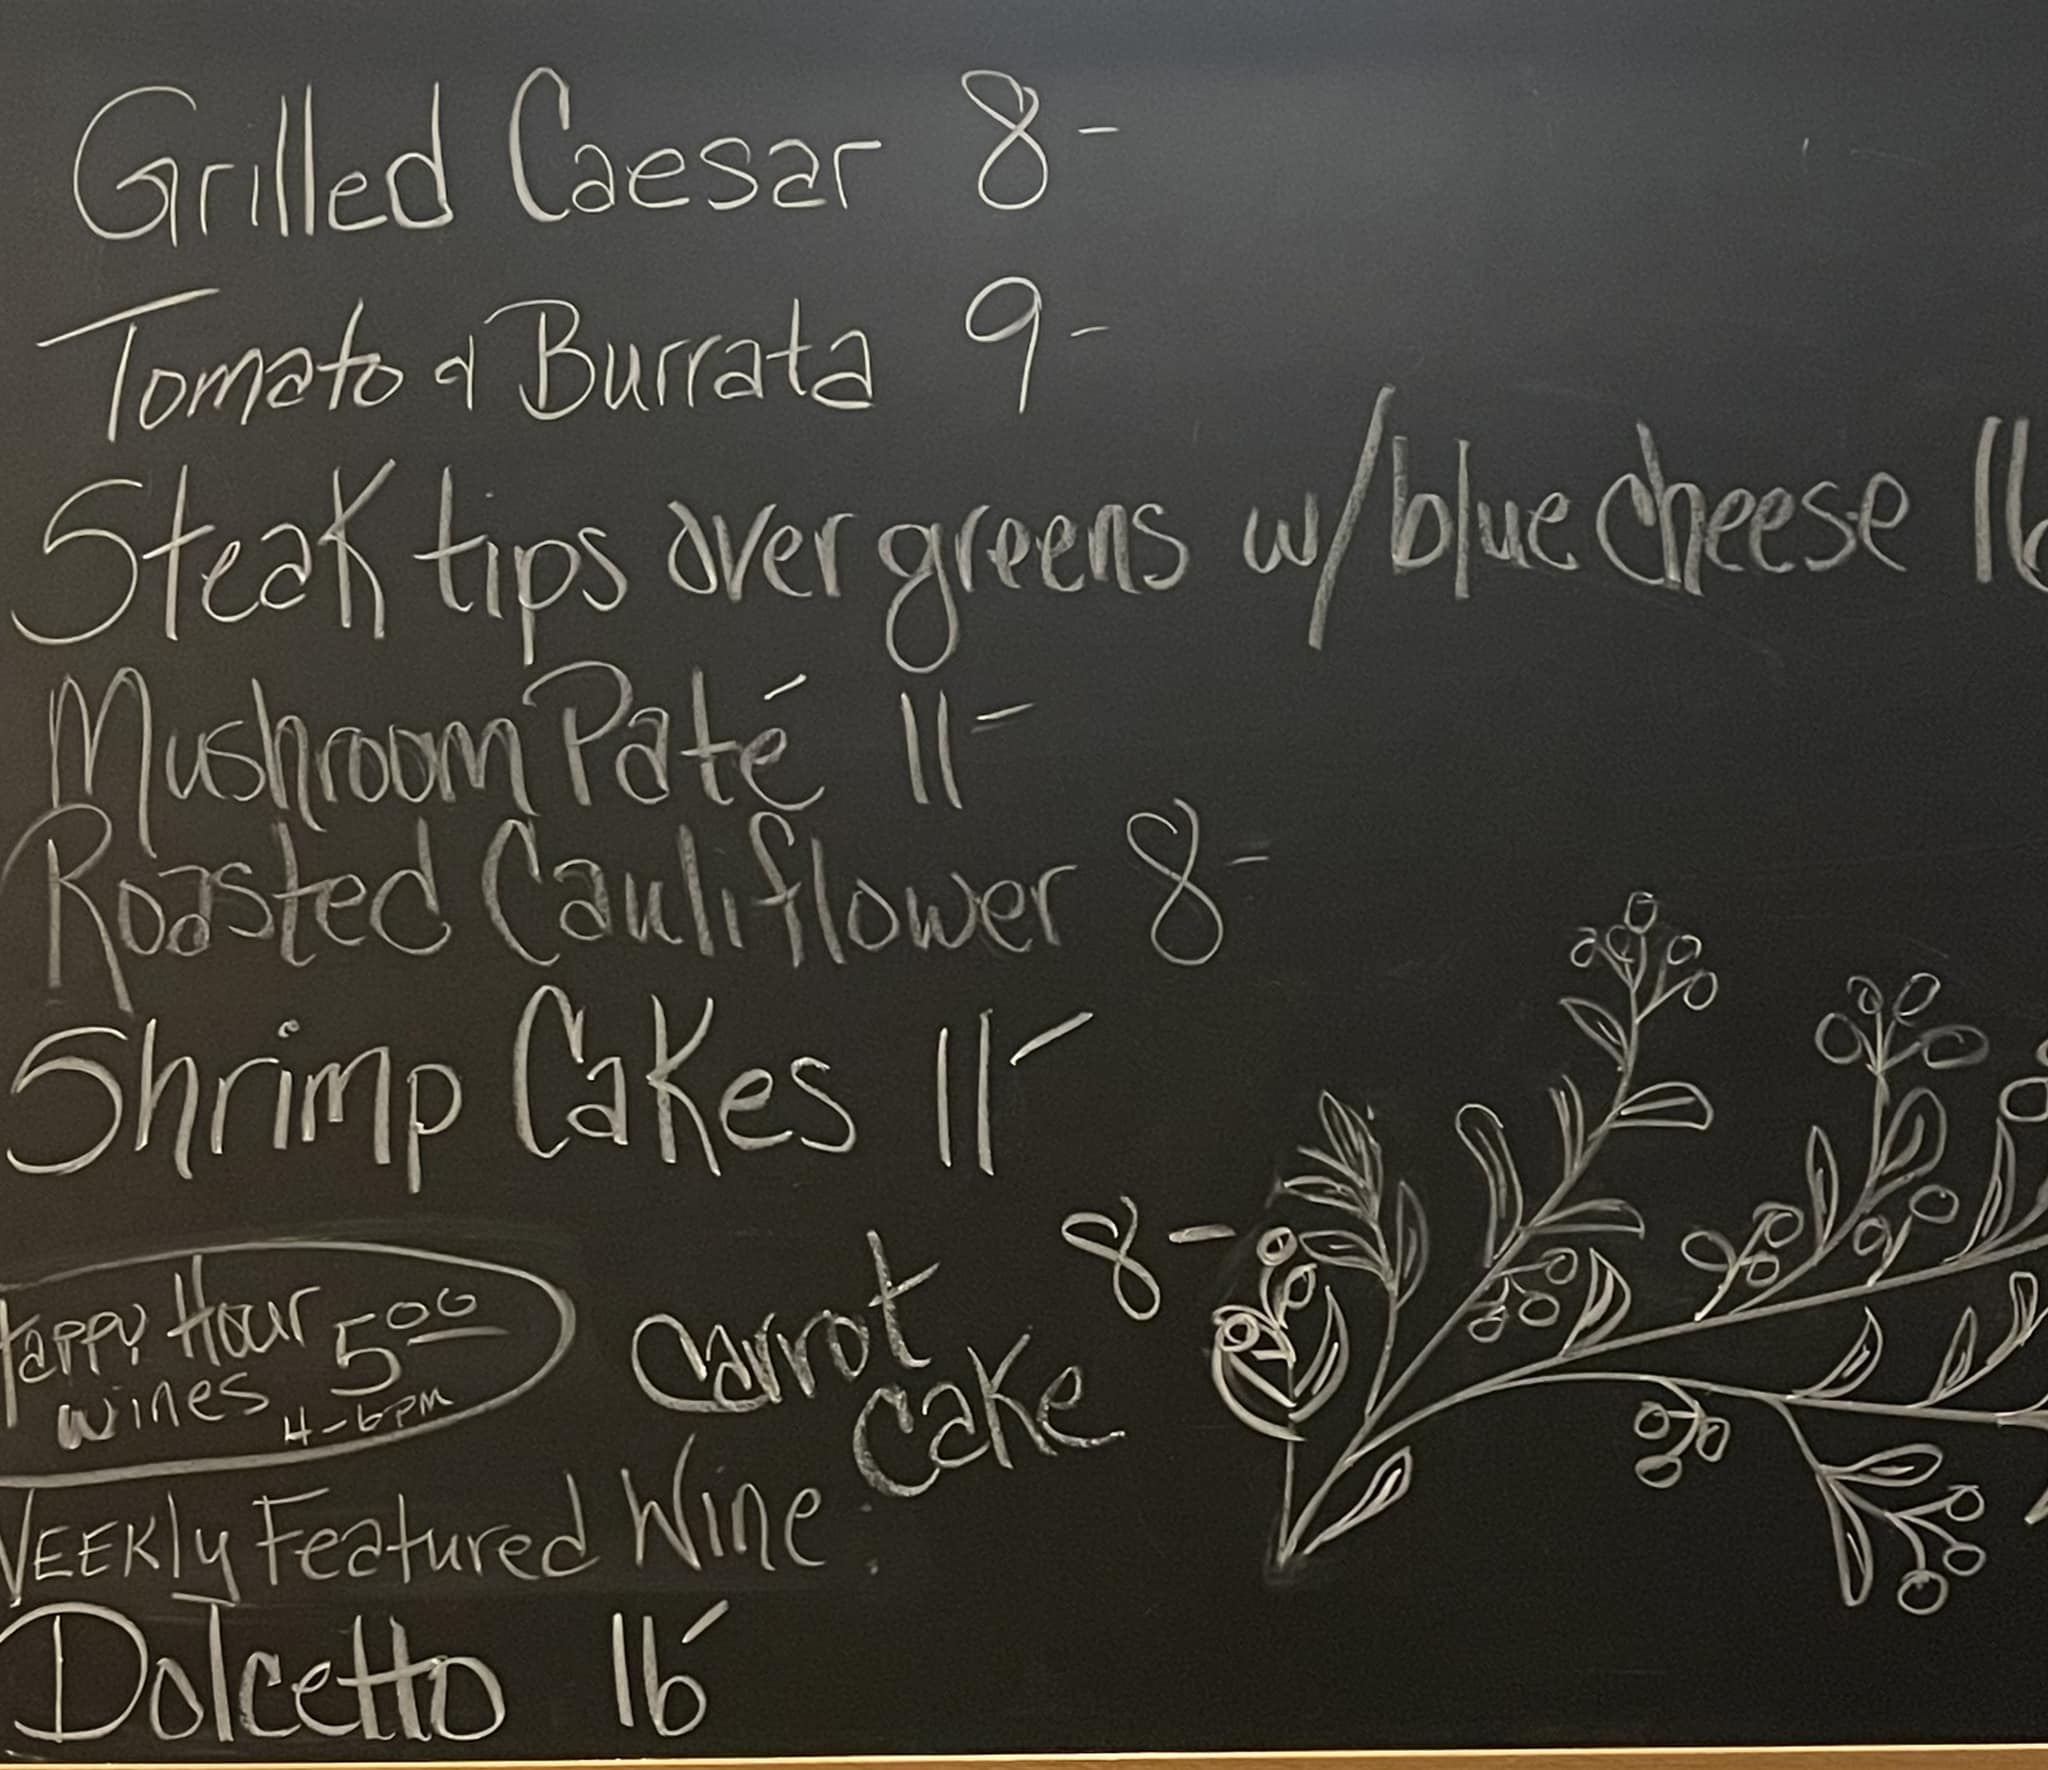 Grilled Caesar 8-
Tomato & Burrata 9-
Steak tips over greens w/ blue cheese 16
Mushroom Paté 11-
Roasted Cauliflower 8-
Shrimp Cakes 11-
Happy Hour
wines 5 00
4-6PM
Carrot
Cake 8-
WEEKly Featured Wine:
Dolcetto 16-